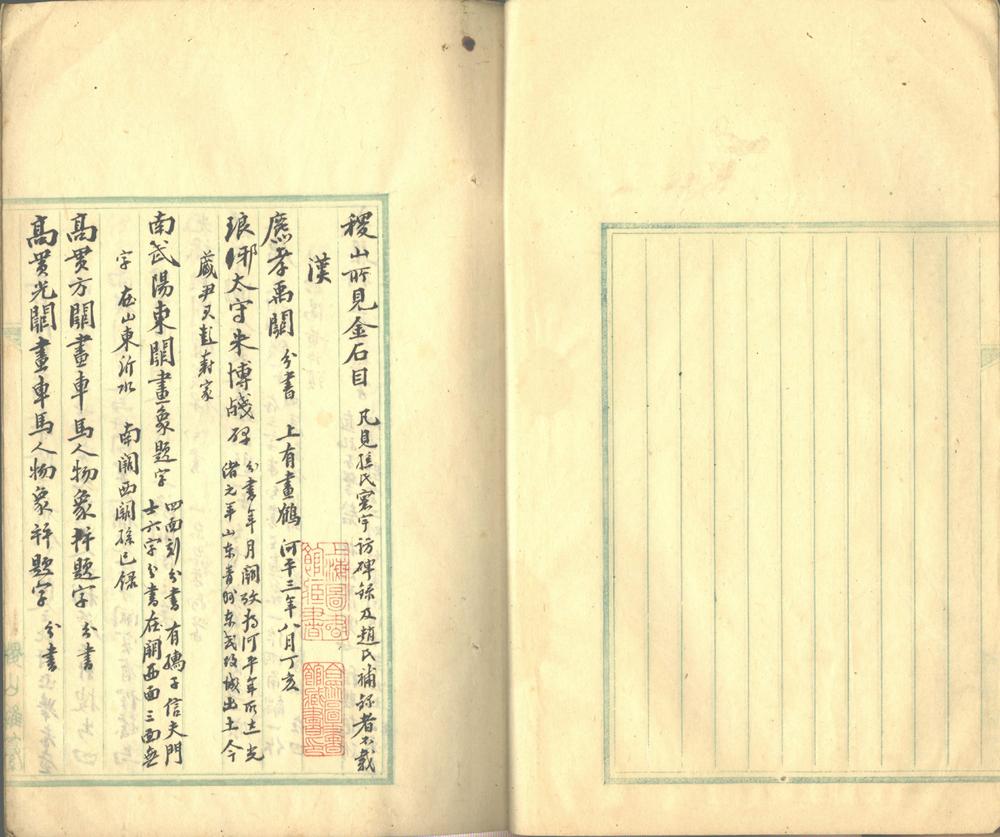 稷山所見金石目 凡見孫氏寰宇訪碑錄及趙氏補錄者不載
漢
麃孝禹闕 分書 上有畫鶴 河平三年八月丁亥
琅邪太守朱博殘碑 分書年月闕攷為河平年所立光
緒元年山东青州东武故城出土今
藏尹天彭壽家
南武陽東闕畫象題字 四面刻分書有孺子信夫門
士六字分書在闕西面三面無
字 在山東沂水 南闕西闕孫已錄
高貫方闕畫車馬人物象并題字 分書
高貫光闕畫車馬人物象并題字 分書
上海圖書館藏書